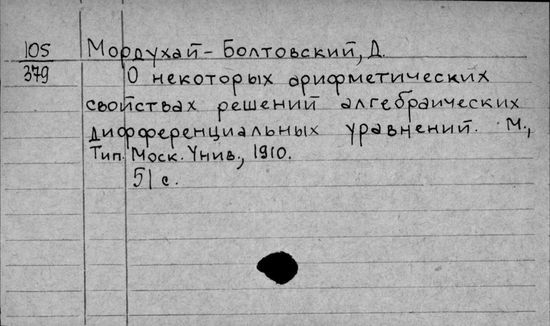 105 Мордухай-Болтовский, Д.
379 О некоторых арифметических
свойствах решений алгебраических
дифференциальных уравнений. М.,
Тип. Моск. Унив., 1910.
51 с.